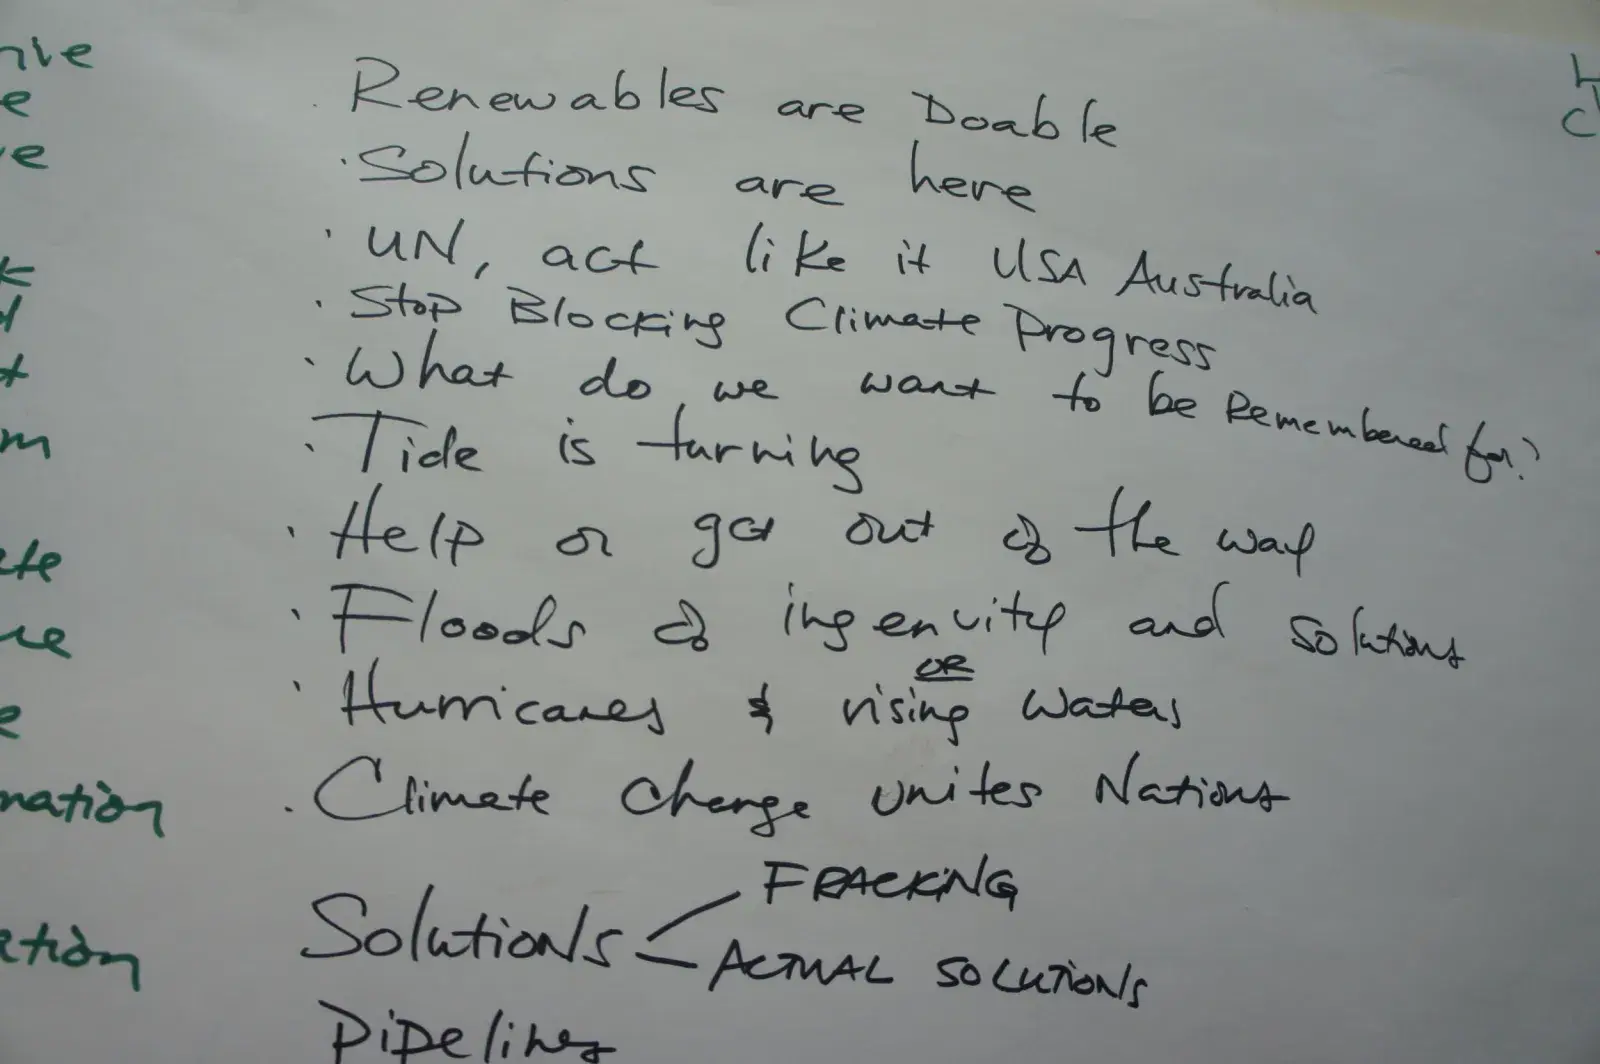 · Renewables are Doable
· Solutions are here
· UN, act like it USA Australia
· Stop Blocking Climate Progress
· What do we want to be Remembered for?
· Tide is turning
· Help or get out of the way
· Floods of ingenuity and solutions
OR
· Hurricanes & rising waters
· Climate Change unites Nations
Solutions < FRACKING
ACTUAL SOLUTIONS
Pipelines